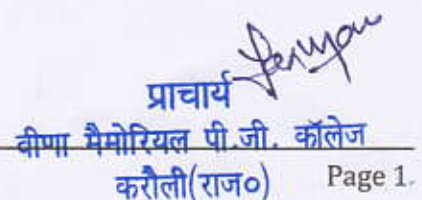 प्राचार्य
वीणा मैमोरियल पी.जी. कॉलेज
करौली(राज०) Page 1